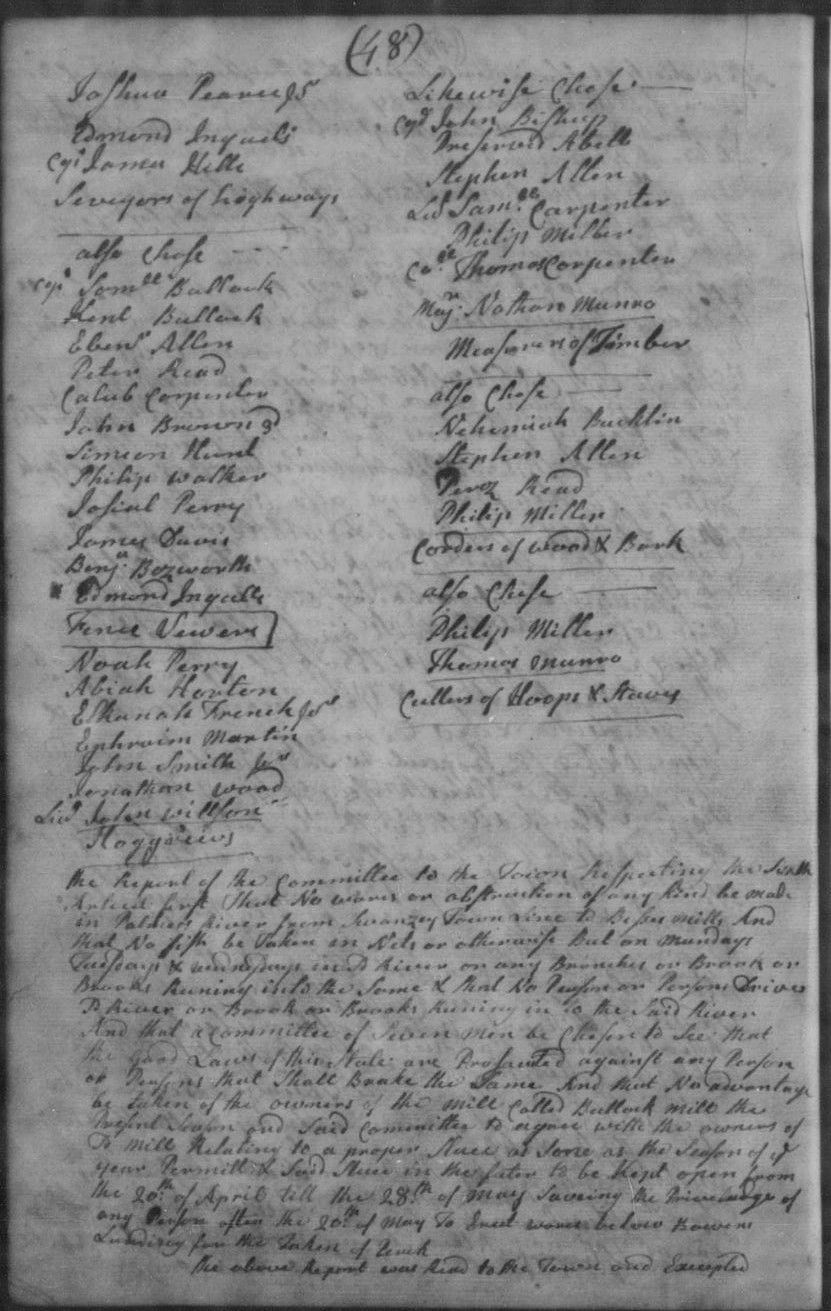 (48)
Joshua Pearce Jr
Edmond Ingals
Cpt James Hills
Seveyors of highways
also Chose
Cpt Samll Bullock
Kent Bullock
Ebenr Allen
Peter Read
Calub Carpenter
John Brown 3d
Simeon Hunt
Philip Walker
Josiah Perry
James Davis
Benjn Bozworth
Edmond Ingalls
Fence Vewers
Noah Perry
Abiah Horton
Elkanah French Jr
Ephraim Martin
John Smith
Jonathan Wood
Lieut John Willson
Hoggreivs
Likewise Chose
Cpt John Bishop
Preserved Abell
Stephen Allen
Leut Samll Carpenter
Philip Miller
Thomas Carpenter
Majr Nathan Munro
Measurers of Timber
also Chose
Nehemiah Bucklin
Stephen Allen
Perez Read
Philip Miller
Corders of wood & Bark
also Chose
Philip Miller
Thomas Munro
Cullers of Hoops & Staves
the Report of the Committee to the Town Respecting the
Artica first That No wares or obstruction of any Kind be made
in Palmers River from Swanzey Town Line to Mills And
that No fish be Taken in Nets or otherwise But on Mundays
Tuesdays & wednsdays in sd River or any Branches or Brook or
Brooks Runing into the Same & that No Person or Persons Drive
sd River or Brook or Brooks Runing in to the Said River
And that a Committee of Seven men be Chosen to See that
the good Laws of this State are Prosecuted against any Person
or Persons that Shall Brake the Same And that No advantage
be taken of the owners of the mill Called Bullock mill the
Present Season and Said Committee to agree with the owners of
sd Mill Relating to a proper Sluce as Sone as the Season of ye
year Permitt & Said Sluce in the futer to be Kept open from
the 20th of April till the 28th of May Saveing the Priveledge of
any Person after the 20th of May To Erect wares below Bowens
Landing for the Taken of
the above Report was Read to the Town and Excepted